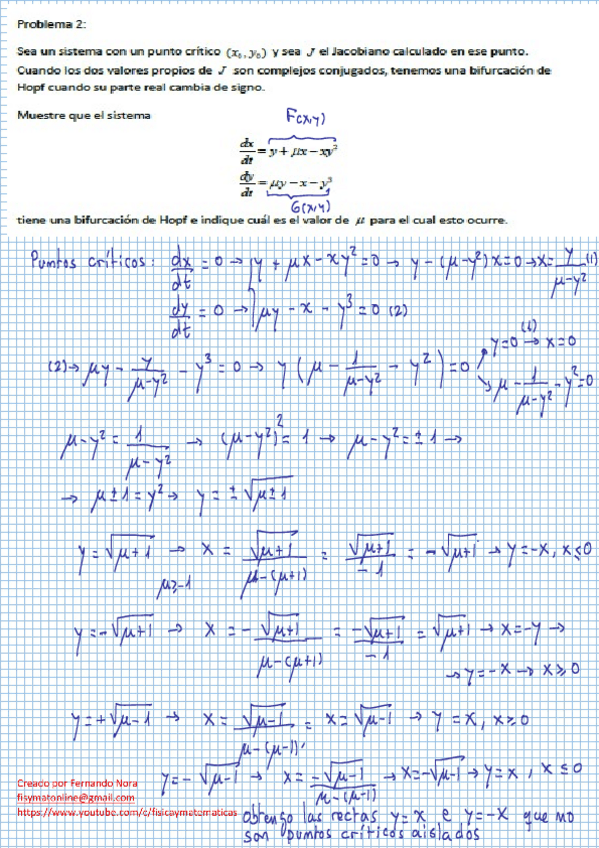 Problema 2:
Sea un sistema con un punto crítico (x₀, y₀) y sea J el Jacobiano calculado en ese punto.
Cuando los dos valores propios de J son complejos conjugados, tenemos una bifurcación de
Hopf cuando su parte real cambia de signo.
Muestre que el sistema
F(x,y)
dx/dt = y + μx − xy²
dy/dt = μy − x − y³
G(x,y)
tiene una bifurcación de Hopf e indique cuál es el valor de μ para el cual esto ocurre.
Puntos críticos: dx/dt = 0 → y + μx − xy² = 0 → y − (μ−y²)x = 0 → x = y/(μ−y²) (1)
dy/dt = 0 → μy − x − y³ = 0 (2)
(2) → μy − y/(μ−y²) − y³ = 0 → y(μ − 1/(μ−y²) − y²) = 0
y=0 → x=0
μ − 1/(μ−y²) − y² = 0
μ−y² = 1/(μ−y²) → (μ−y²)² = 1 → μ−y² = ±1 →
→ μ±1 = y² → y = ±√(μ±1)
y = √(μ+1) → x = √(μ+1)/(μ−(μ+1)) = √(μ+1)/−1 = −√(μ+1) → y=−x, x≤0
μ≥−1
y = −√(μ+1) → x = −√(μ+1)/(μ−(μ+1)) = −√(μ+1)/−1 = √(μ+1) → x=−y →
→ y=−x → x≥0
y = +√(μ−1) → x = √(μ−1)/(μ−(μ−1)) = x = √(μ−1) → y = x, x≥0
y = −√(μ−1) → x = −√(μ−1)/(μ−(μ−1)) → x = −√(μ−1) → y=x, x≤0
Creado por Fernando Nora
fisymatonline@gmail.com
https://www.youtube.com/c/fisicaymatematicas
obtengo las rectas y=x e y=−x que no
son puntos críticos aislados